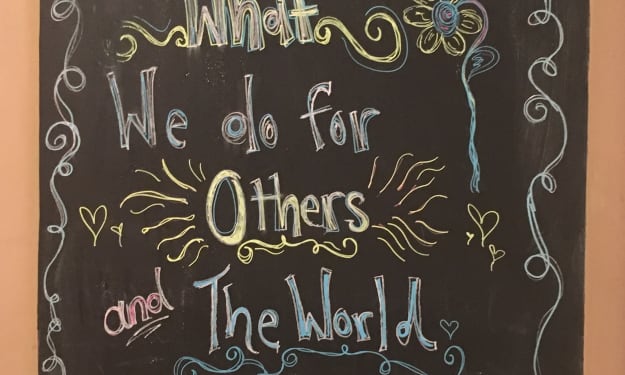 What
We do for
Others
and The World